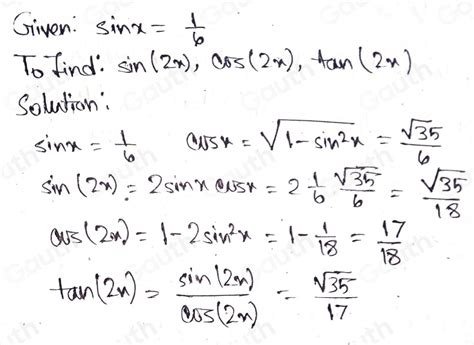 Given: sinx = 1/6
To find: sin(2x), cos(2x), tan(2x)
Solution:
sinx = 1/6   cosx = √(1-sin²x) = √35/6
sin(2x) = 2sinx cosx = 2 1/6 √35/6 = √35/18
cos(2x) = 1-2sin²x = 1-1/18 = 17/18
tan(2x) = sin(2x)/cos(2x) = √35/17